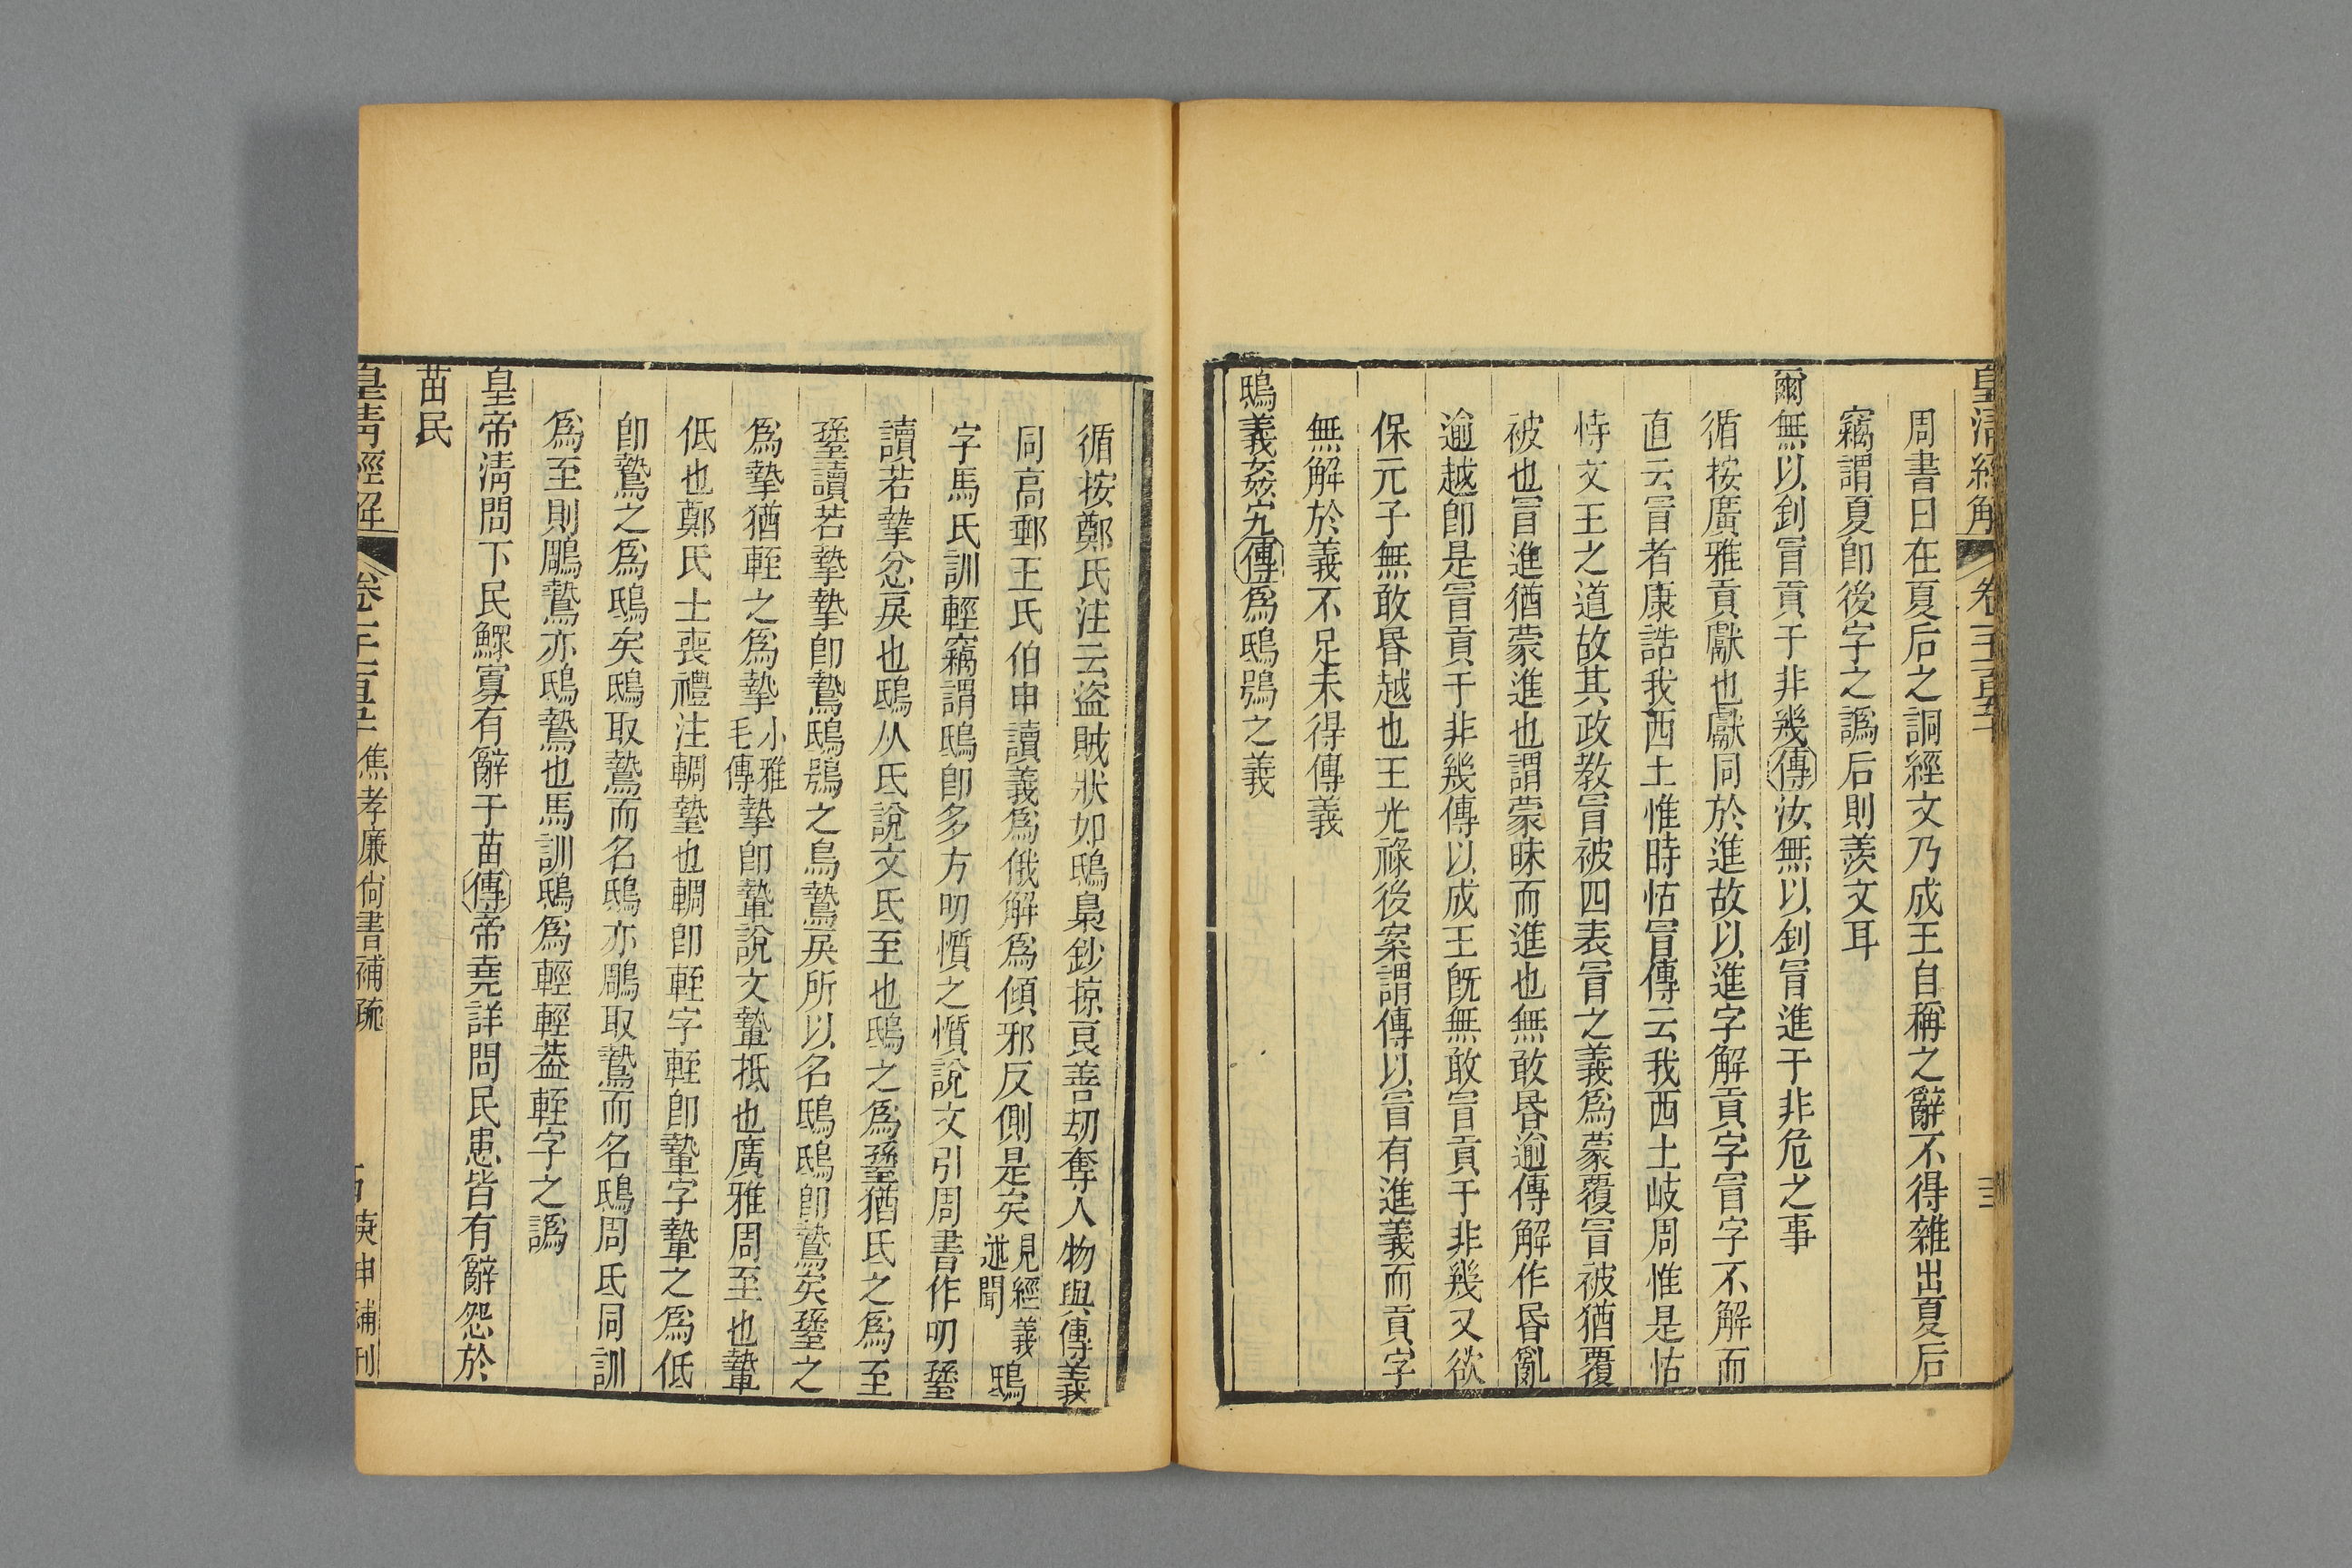 皇清經解 卷一千一百五十 三
周書曰在夏后之詷經文乃成王自稱之辭不得雜出夏后
竊謂夏卽後字之譌后則羨文耳
爾無以釗冒貢于非幾傳汝無以釗冒進于非危之事
循按廣雅貢獻也獻同於進故以進字解貢字冒字不解而
直云冒者康誥我西土惟時怙冒傳云我西土岐周惟是怙
恃文王之道故其政教冒被四表冒之義爲蒙覆冒被猶覆
被也冒進猶蒙進也謂蒙昧而進也無敢昬逾傳解作昬亂
逾越卽是冒貢于非幾傳以成王旣無敢冒貢于非幾又欲
保元子無敢昬越也王光祿後案謂傳以冒有進義而貢字
無解於義不足未得傳義
鴟義姦宄傳爲鴟鴞之義
循按鄭氏注云盜賊狀如鴟梟鈔掠良善劫奪人物與傳義
同高郵王氏伯申讀義爲俄解爲傾邪反側是矣見經義述聞鴟
字馬氏訓輕竊謂鴟卽多方叨懫之懫說文引周書作叨𦥎
讀若摯忿戾也鴟从氐說文氐至也鴟之爲𦥎猶氐之爲至
𦥎讀若摯摯卽鷙鴟鴞之鳥鷙戾所以名鴟鴟卽鷙矣𦥎之
爲摯猶輊之爲摯小雅毛傳摯卽蟄說文蟄抵也廣雅周至也蟄
低也鄭氏士喪禮注輖蟄也輖卽輊字輊卽蟄字蟄之爲低
卽鷙之爲鴟矣鴟取鷙而名鴟亦鵰取鷙而名鴟周氐同訓
爲至則鵰鷙亦鴟鷙也馬訓鴟爲輕輕葢輊字之譌
皇帝清問下民鰥寡有辭于苗傳帝堯詳問民患皆有辭怨於
苗民
皇清經解 卷一千一百五十 焦孝廉尚書補疏 庚申補刊